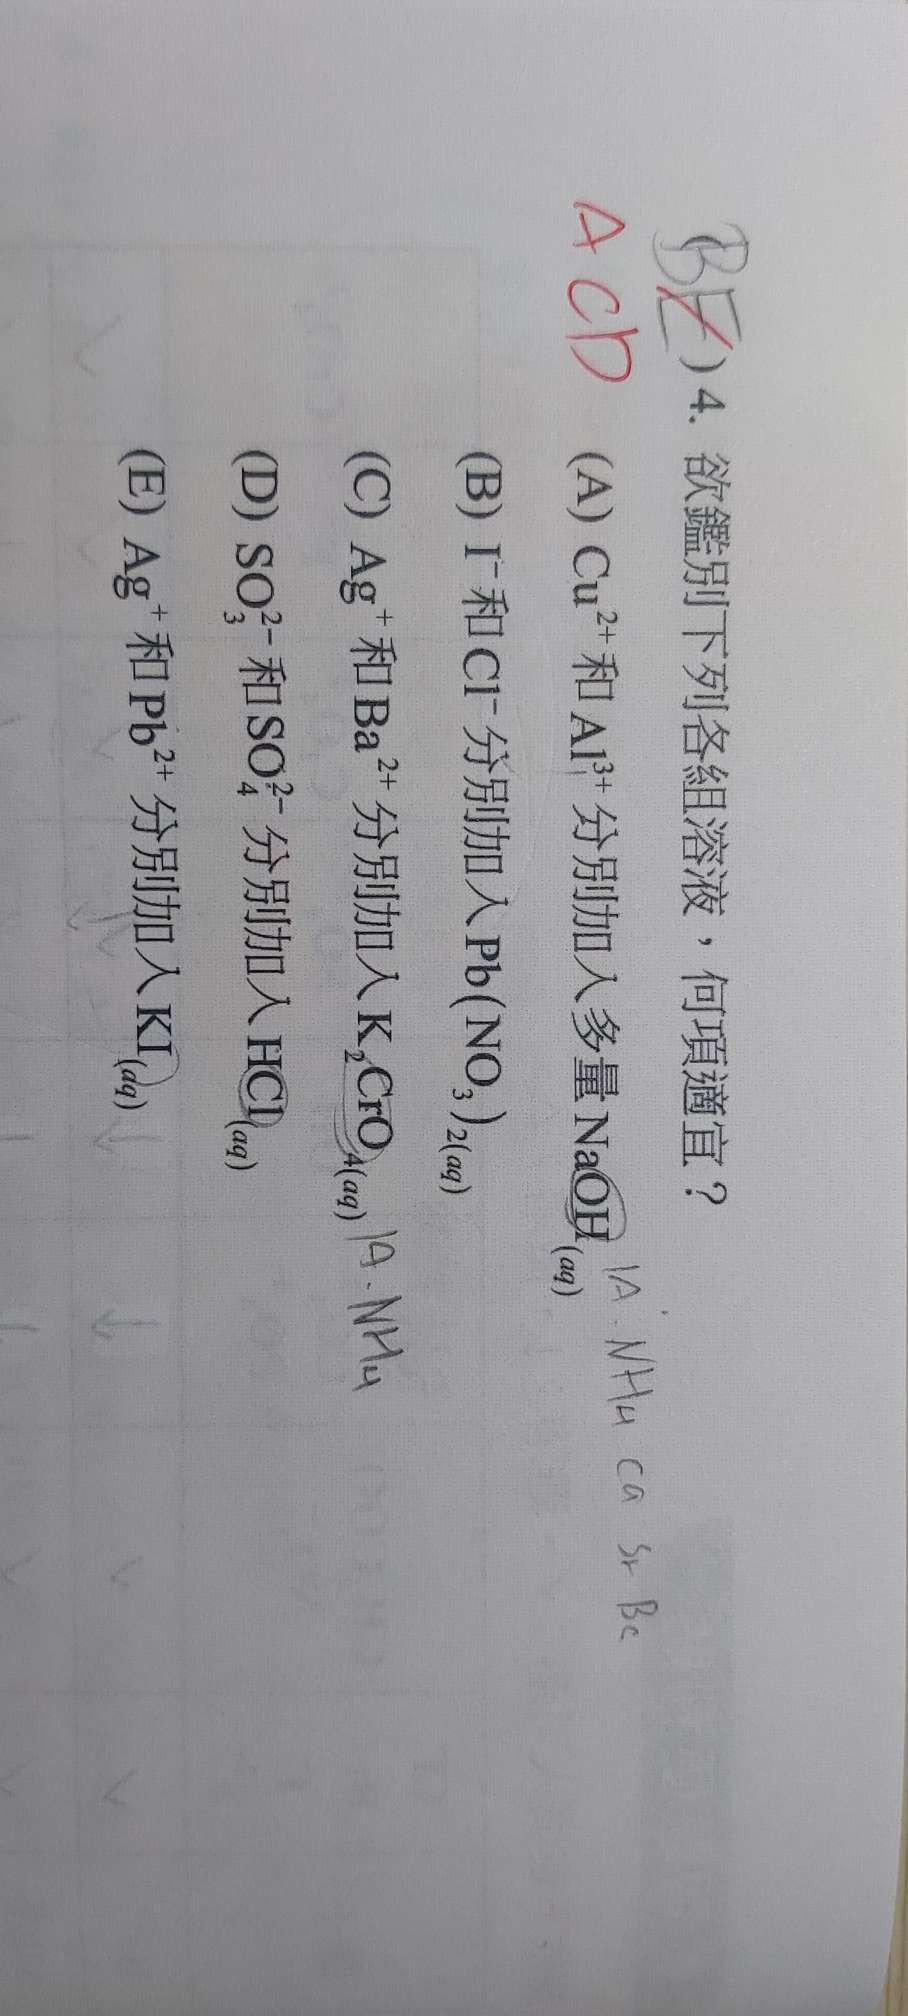 (BE) 4. 欲鑑別下列各組溶液，何項適宜？
ACD
(A) Cu²⁺和Al³⁺分別加入多量NaOH(aq) IA. NH4 Ca Sr Ba
(B) I⁻和Cl⁻分別加入Pb(NO₃)₂(aq)
(C) Ag⁺和Ba²⁺分別加入K₂CrO₄(aq) IA. NH4
(D) SO₃²⁻和SO₄²⁻分別加入HCl(aq)
(E) Ag⁺和Pb²⁺分別加入KI(aq)